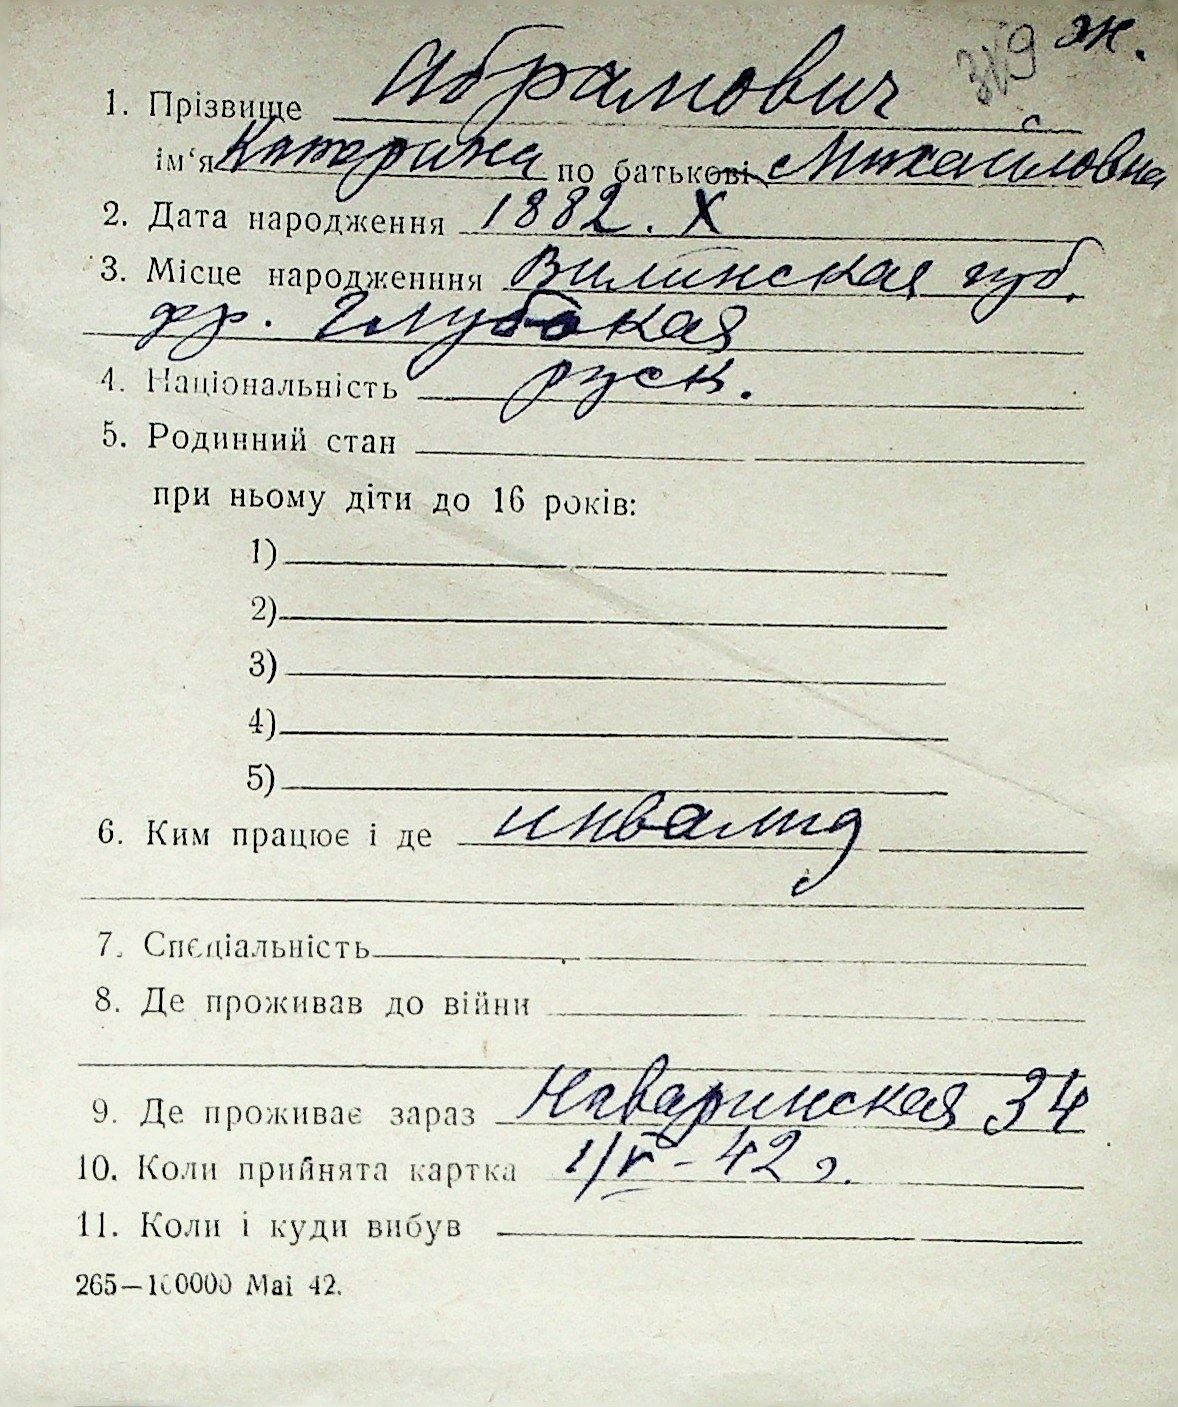 ж.
1. Прізвище Абрамович
ім'я Катерина по батькові Михайловна
2. Дата народження 1882. X
3. Місце народженння Виленская губ.
фр. Глубокая
4. Національність руск.
5. Родинний стан
при ньому діти до 16 років:
1)
2)
3)
4)
5)
6. Ким працює і де инвалид
7. Спеціальність
8. Де проживав до війни
9. Де проживає зараз Наваринская 34
10. Коли прийнята картка 1/V - 42 г.
11. Коли і куди вибув
265—100000 Маі 42.